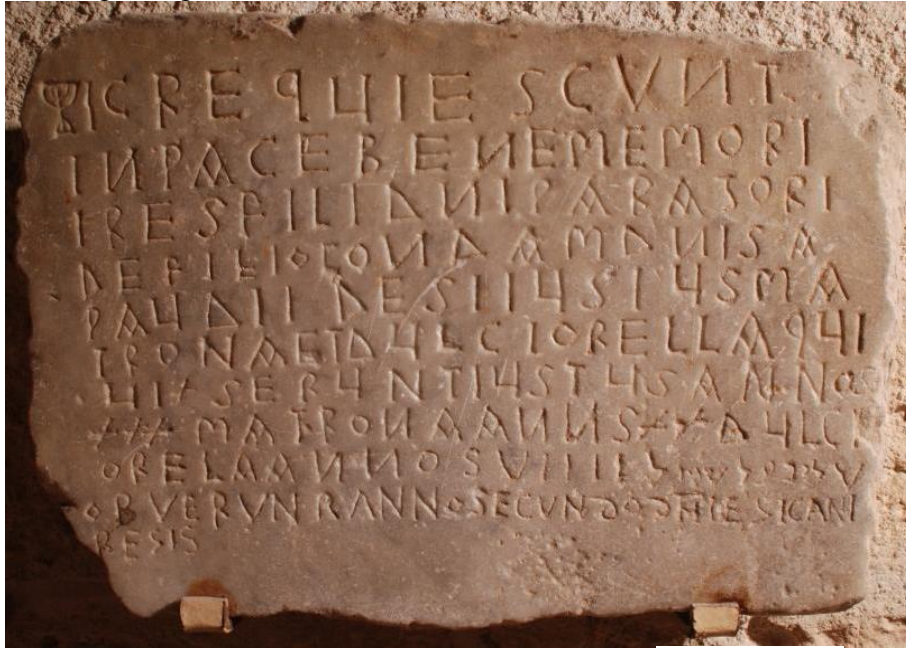 IC REQUIESCVNT
IN PACE BENEMEMORI
TRES FILI DNI PARATORI
DE FILIO CONDAM DNI SA
PAUDI ID EST IUSTUS MA
TRONA ET DULCIORELLA QUI
UIXSERUNT IUSTUS ANNOS
XXX MATRONA ANNS XX DULCI
ORELA ANNOS VIIII שלום על שראל
OBVERVN RANNO SECUNDO DNI EGICANI
REGIS